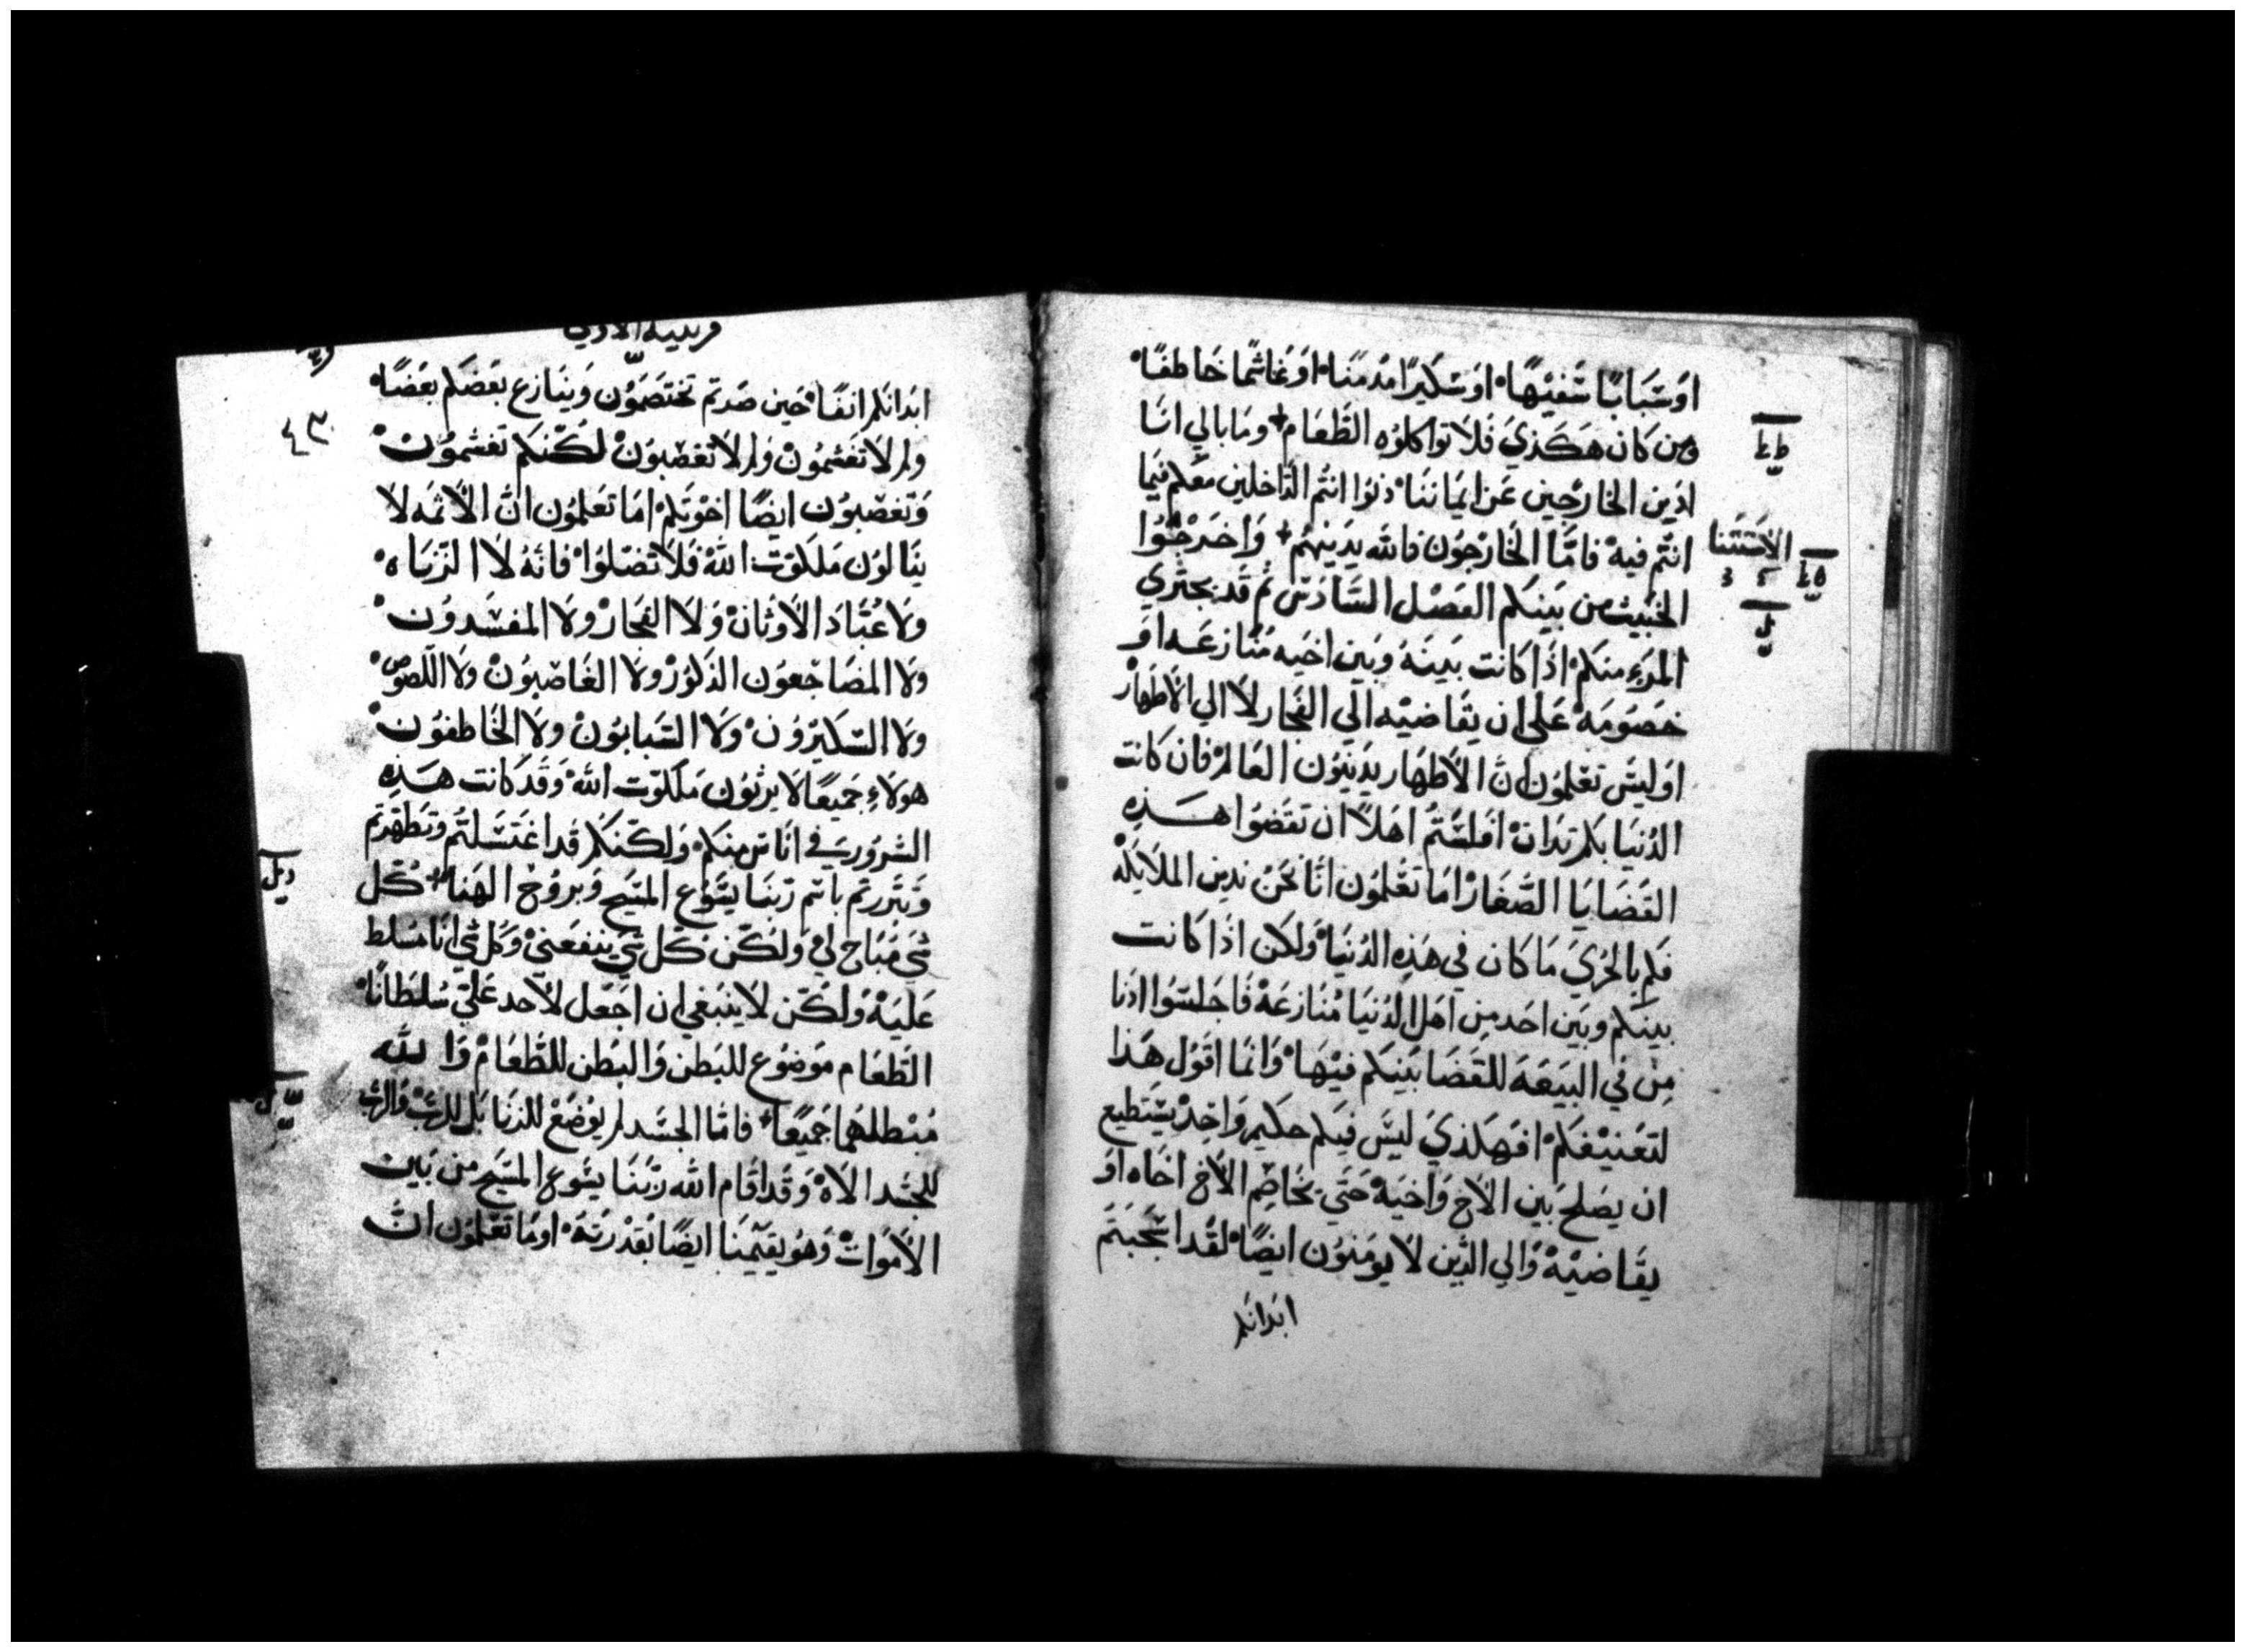 اوسبابًا سفيهًا اوسكيرًا مدمنًا اوغاشمًا خاطفًا
ومن كان هكذي فلا تواكلوه الطعام وما بالي انا
ادين الخارجين عن ايماننا دنوا انتم الداخلين معكم فيما
انتم فيه فاما الخارجون فالله يدينهم واخرجوا
الخبيث من بينكم الفصل السادس ثم قد يجتري
المرء منكم اذا كانت بينه وبين اخيه منازعه او
خصومه علي ان يقاضيه الي الفجار لا الي الاطهار
اوليس تعلمون ان الاطهار يدينون العالم فان كانت
الدنيا بكم تدان افلستم اهلًا ان تقضوا هذه
القضايا الصغار اما تعلمون انا نحن ندين الملايكه
فكم بالحري ما كان في هذه الدنيا ولكن اذا كانت
بينكم وبين احد من اهل الدنيا منازعه فاجلسوا ادنا
من في البيعه للقضا بينكم فيها وانما اقول هذا
لتعنيفكم افهكذي ليس فيكم حكيم واحد يستطيع
ان يصلح بين الاخ واخيه حتي يخاصم الاخ اخاه او
يقاضيه والي الذين لا يومنون ايضًا لقد اشجبتم
ابدانكم
الاستثنا
ابدانكم انفًا حين صرتم تختصمون وينازع بعضكم بعضًا
ولم لا تغشمون ولم لا تغصبون لكنكم تغشمون
وتغصبون ايضًا اخوتكم اما تعلمون ان الاثمه لا
ينالون ملكوت الله فلا تضلوا فانه لا الزناه
ولا عباد الاوثان ولا الفجار ولا المفسدون
ولا المضاجعون الذكور ولا الغاصبون ولا اللصوص
ولا السكيرون ولا السبابون ولا الخاطفون
هولاء جميعًا لا يرثون ملكوت الله وقد كانت هذه
الشرور في اناس منكم ولكنكم قد اغتسلتم وتطهرتم
وتبررتم باسم ربنا يسوع المسيح وبروح الهنا كل
شي مباح لي ولكن كل شي ينفعني وكل شي انا مسلط
عليه ولكن لا ينبغي ان اجعل لاحد علي سلطانًا
الطعام موضوع للبطن والبطن للطعام والله
مبطلهما جميعًا فاما الجسد لم يوضع للزنا بل للرب والرب
للجسد الاه وقد اقام الله ربنا يسوع المسيح من بين
الاموات وهو يقيمنا ايضًا بقدرته اوما تعلمون ان